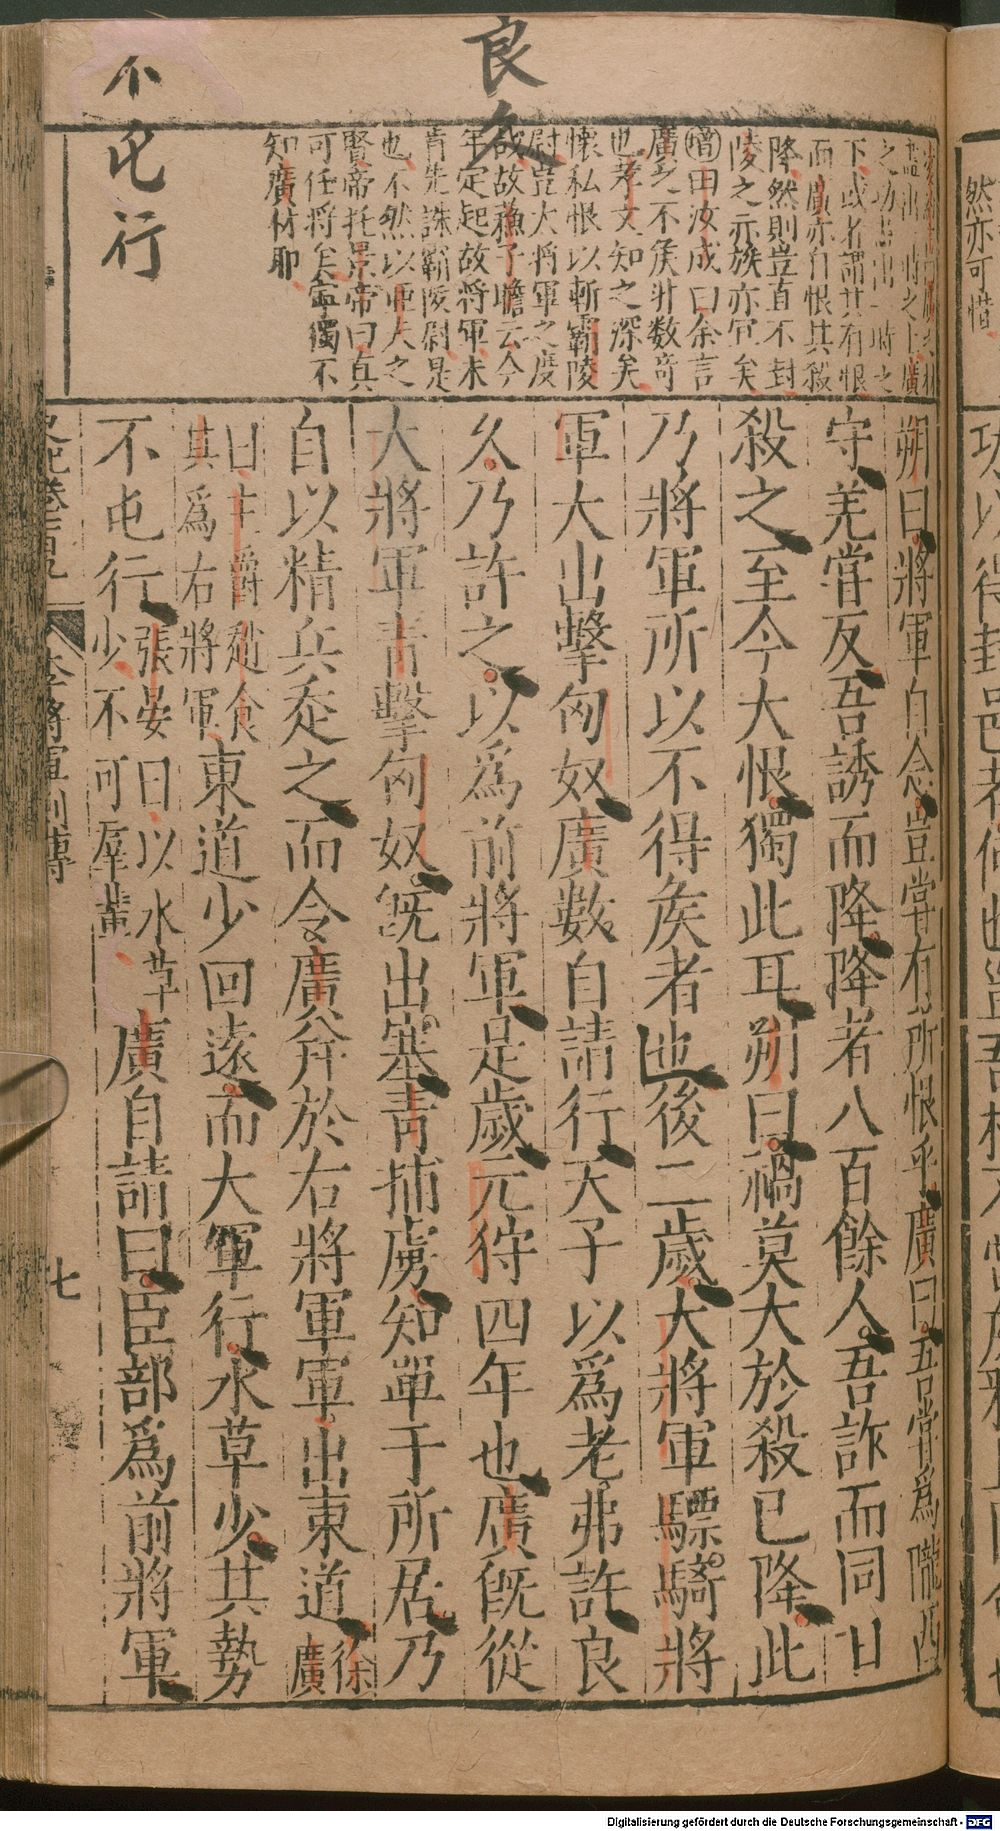 良久
不屯行
下或者謂其有恨
而廣亦自恨其殺
降然則豈直不封
陵之亦族亦冝矣
增田汝成曰余言
廣之不矦附数竒
也孝文知之深矣
懐私恨以斬霸陵
尉豈大將軍之度
哉故蘓子瞻云今
年定起故將軍未
肯先誅霸陵尉是
也不然以亜夫之
賢帝托景帝曰真
可任將矣寧獨不
知廣材耶
朔曰將軍自念豈甞有所恨乎廣曰吾甞爲隴西
守羌甞反吾誘而降降者八百餘人吾詐而同日
殺之至今大恨獨此耳朔曰禍莫大於殺已降此
乃將軍所以不得矦者也後二歲大將軍驃騎將
軍大出擊匈奴廣數自請行天子以爲老弗許良
久乃許之以爲前將軍是歲元狩四年也廣旣從
大將軍青擊匈奴旣出塞青捕虜知單于所居乃
自以精兵走之而令廣并於右將軍軍出東道徐廣
曰主爵趙食
其爲右將軍東道少回遠而大軍行水草少其勢
不屯行張晏曰以水草
少不可羣輩廣自請曰臣部爲前將軍
史記卷百九 李將軍列傳
七
然亦可惜
Digitalisierung gefördert durch die Deutsche Forschungsgemeinschaft - DFG